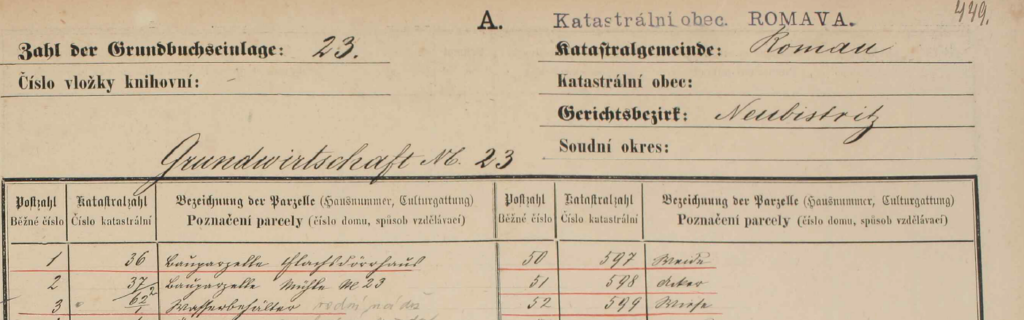 A.
Katastrální obec. ROMAVA.
449.
Zahl der Grundbuchseinlage: 23.
Číslo vložky knihovní:
Katastralgemeinde: Romau
Katastrální obec:
Gerichtsbezirk: Neubistritz
Soudní okres:
Grundwirtschaft N. 23
Postzahl Katastralzahl Bezeichnung der Parzelle (Hausnummer, Culturgattung) Postzahl Katastralzahl Bezeichnung der Parzelle (Hausnummer, Culturgattung)
Běžné číslo Číslo katastrální Poznačení parcely (číslo domu, spůsob vzdělávací) Běžné číslo Číslo katastrální Poznačení parcely (číslo domu, spůsob vzdělávací)
1 36 Bauparzelle Flachsdörrhaus 50 597 Weide
2 37/2 Bauparzelle Mühle N 23 51 598 Acker
3 62/1 Wasserbehälter vodní nádrž 52 599 Wiese